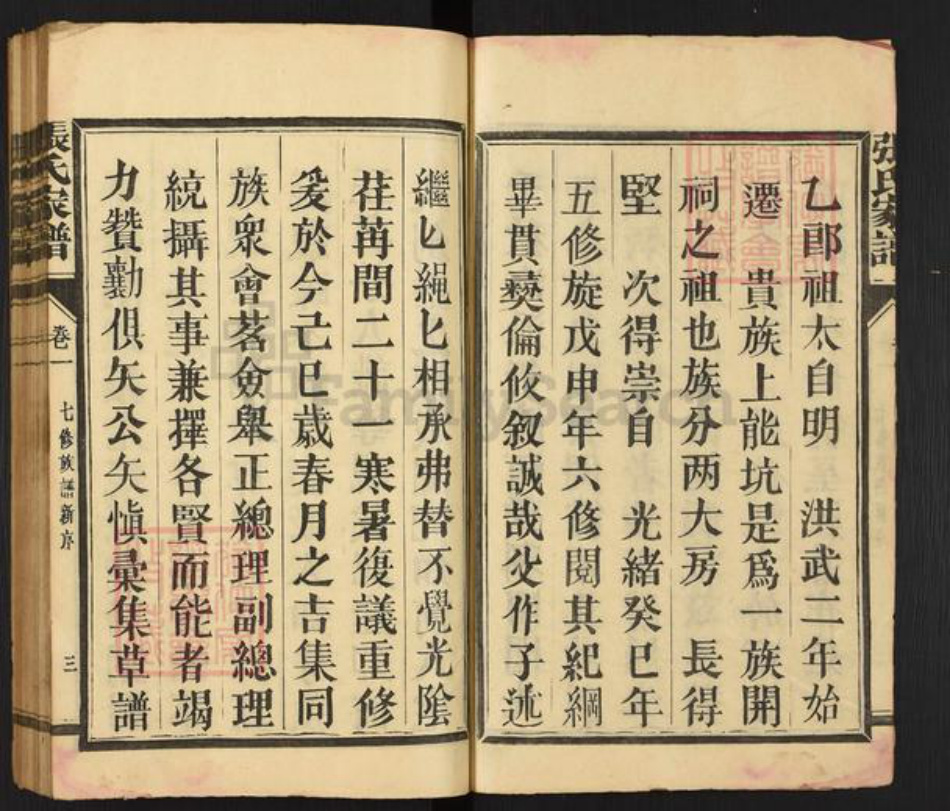 乙郎祖太自明 洪武二年始
遷 貴族上能坑是爲一族開
祠之祖也族分两大房 長得
堅 次得崇自 光緒癸巳年
五修旋戊申年六修閱其紀綱
畢貫彜倫攸叙誠哉父作子述
繼匕繩匕相承弗替不覺光陰
荏苒間二十一寒暑復議重修
爰於今己巳歲春月之吉集同
族衆會茗僉舉正總理副總理
統攝其事兼擇各賢而能者竭
力贊勷俱矢公矢愼彙集草譜
張氏家譜
卷一
七修族譜新序
三
張氏家譜
FamilySearch